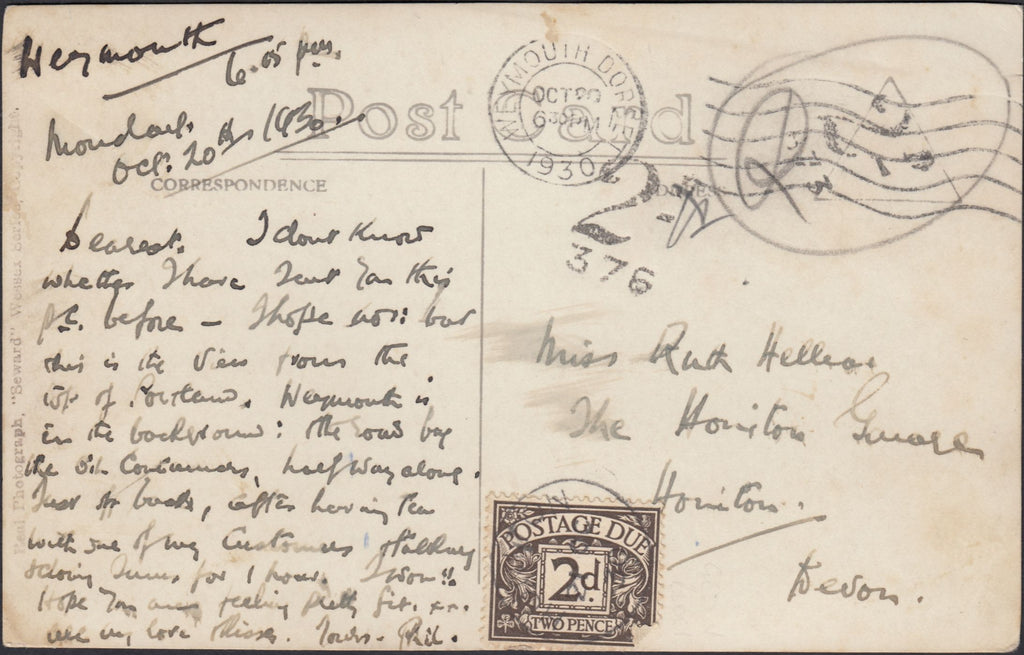 Weymouth
6.05 pm.
Monday.
Oct. 20th 1930.
Post Card
WEYMOUTH DORSET
OCT 20
630 PM
1930
2
376
CORRESPONDENCE
Dearest. I dont know
whether I have sent you this
p.c. before – I hope not: but
this is the view from the
top of Portland. Weymouth is
in the background: the road by
the oil containers, half way along.
Just off back, after having tea
with one of my customers & talking
& doing sums for 1 hour. I won!!
Hope you are feeling pretty fit. xx.
all my love Yours. Phil.
Miss Ruth
The Honiton
Honiton.
Devon.
POSTAGE DUE
2d
TWO PENCE
Real Photograph, "Seward" Wessex Series, Copyright.